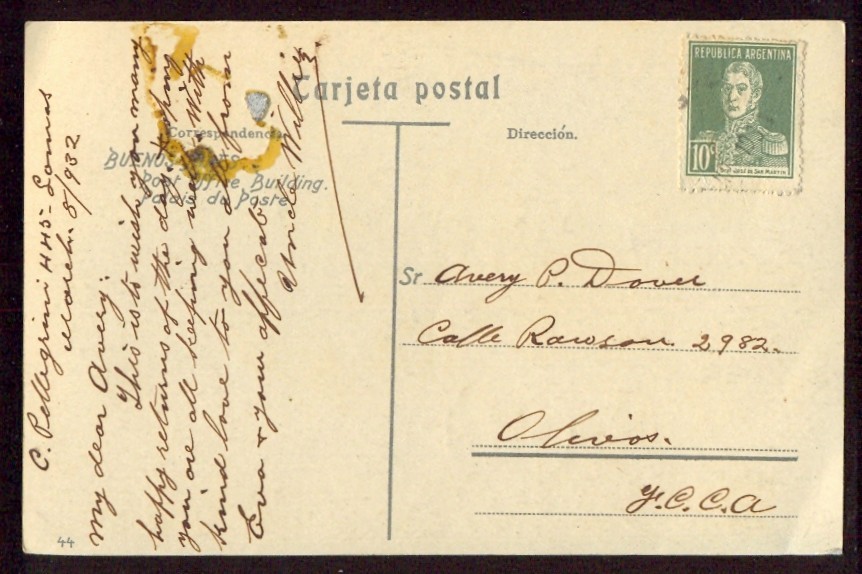 Carjeta postal
Correspondencia
Dirección.
BUENOS AIRES
Post Office Building.
Palais du Poste
44
REPUBLICA ARGENTINA
10c
JOSÉ DE SAN MARTIN
C. Pellegrini 445 - Lomas
March. 8/932
My dear Avery:
This is to wish you many
happy returns of the day, hoping
you are all keeping well. With
kind love to you all from
Eva & your affecate
Uncle Willie
Sr Avery P. Dover
Calle Rawson 2982.
Olivos.
F.C.C.A